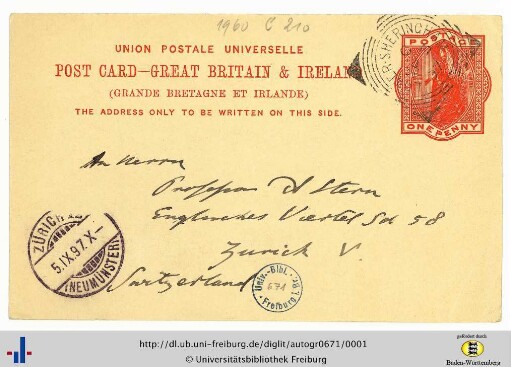 1960 C 210
UNION POSTALE UNIVERSELLE
POST CARD—GREAT BRITAIN & IRELAND
(GRANDE BRETAGNE ET IRLANDE)
THE ADDRESS ONLY TO BE WRITTEN ON THIS SIDE.
POSTAGE
ONE PENNY
An Herrn
Professor A Stern
Englisches Viertel Str 58
Zurich V.
Switzerland
ZÜRICH 12
5.IX.97.X-
(NEUMÜNSTER)
Univ.-Bibl.
671
Freiburg i. Br.
http://dl.ub.uni-freiburg.de/diglit/autogr0671/0001
© Universitätsbibliothek Freiburg
gefördert durch
Baden-Württemberg